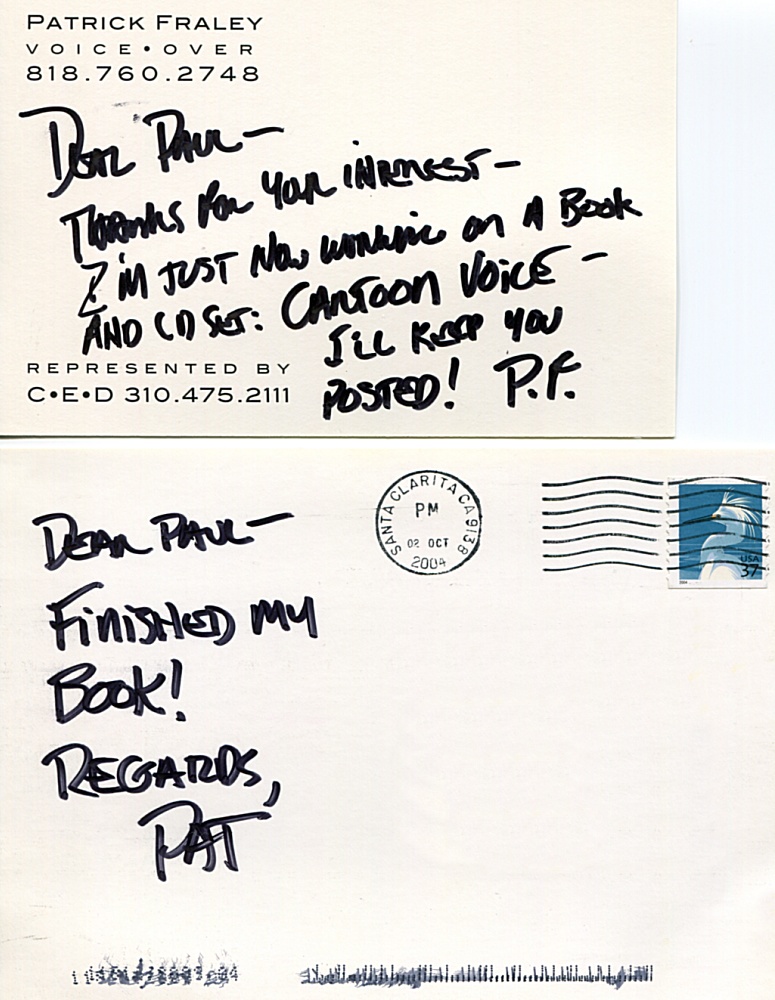 PATRICK FRALEY
VOICE•OVER
818.760.2748
DEAR PAUL—
THANKS FOR YOUR INTEREST—
I'M JUST NOW WORKING ON A BOOK
AND CD SET: CARTOON VOICE—
I'LL KEEP YOU
POSTED! P.F.
REPRESENTED BY
C•E•D 310.475.2111
SANTA CLARITA CA 913 8
PM
02 OCT
2004
USA
37
DEAR PAUL—
FINISHED MY
BOOK!
REGARDS,
PAT